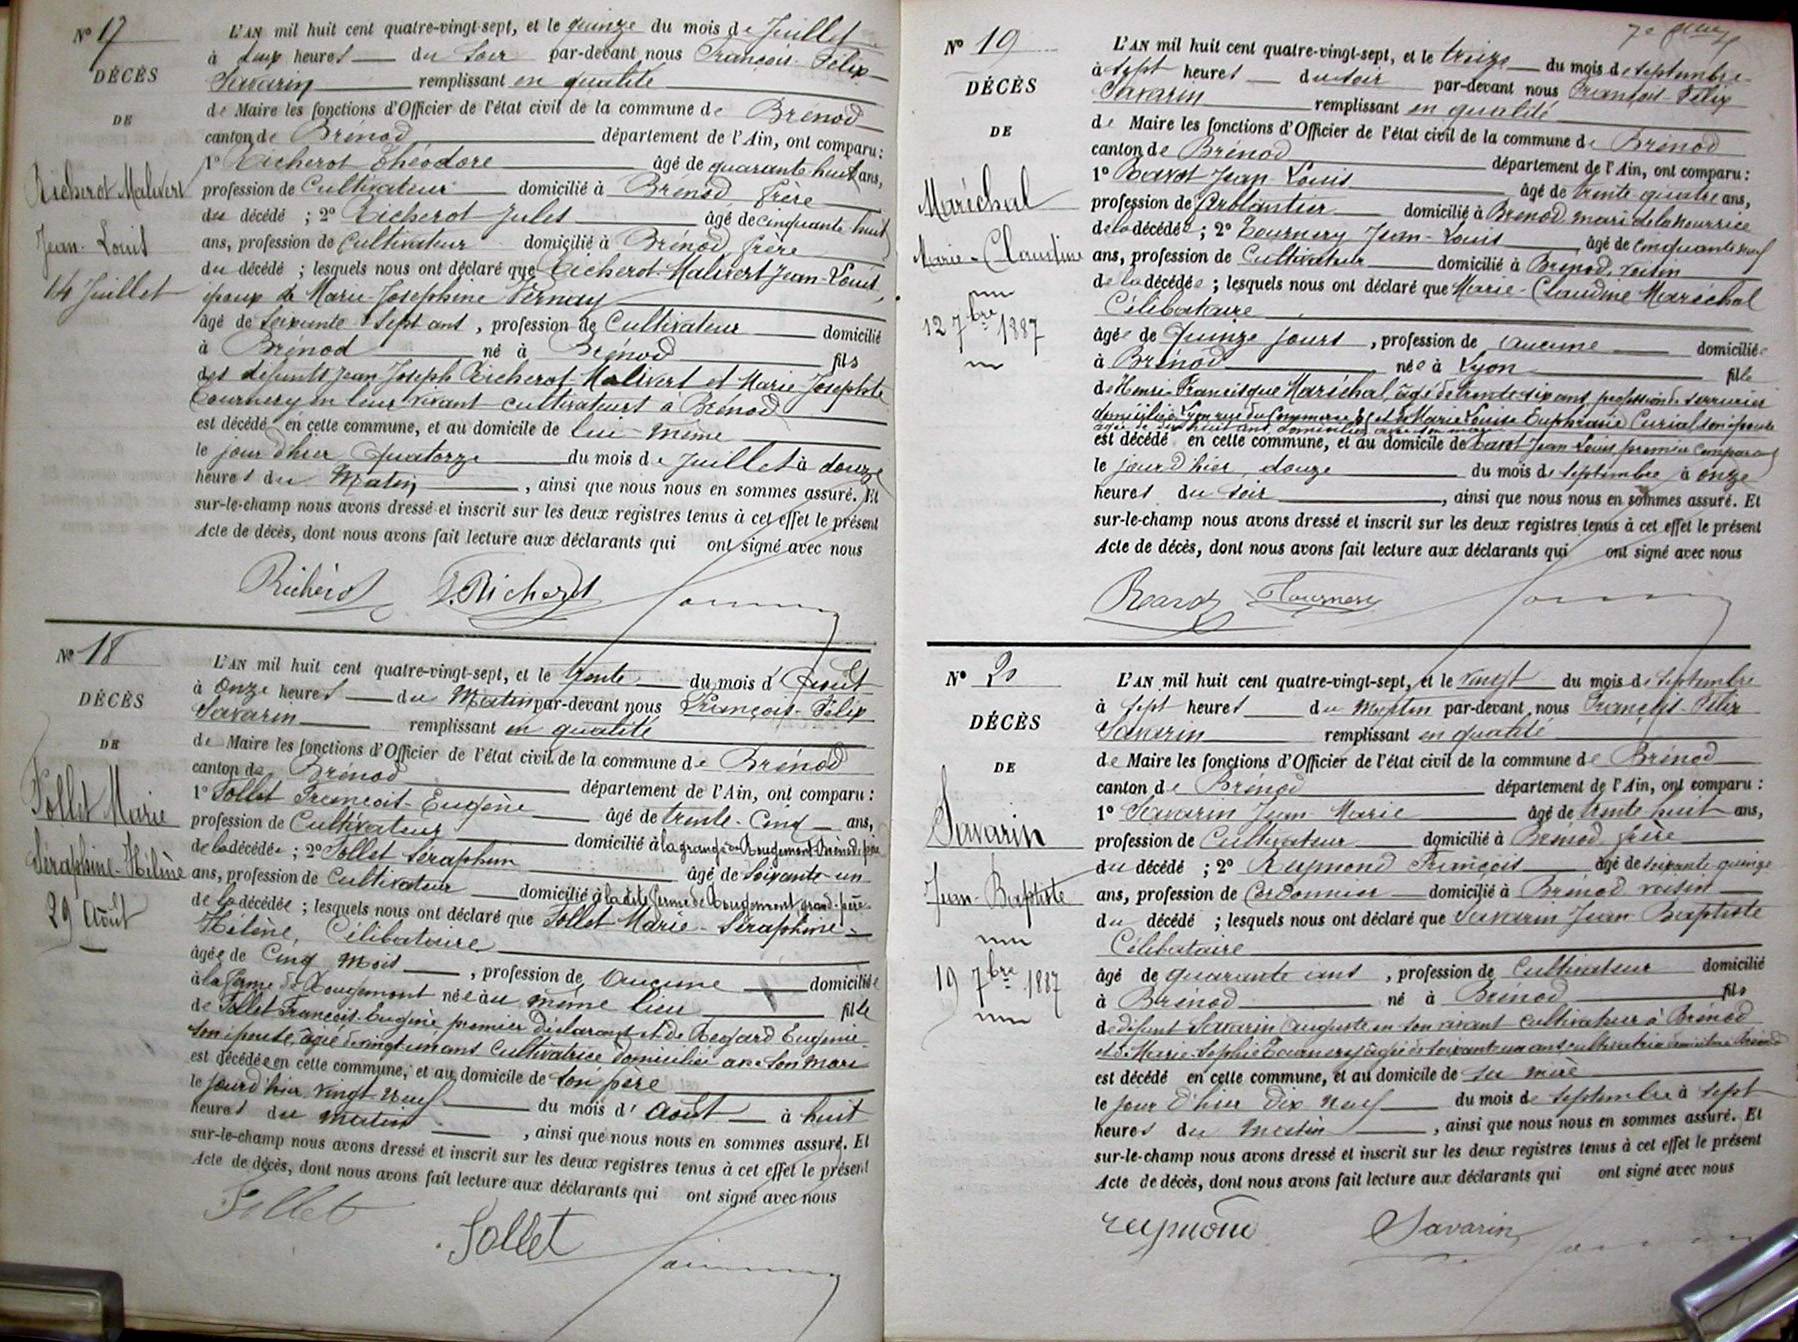 N° 17
DÉCÈS
DE
Richerot Malivert
Jean-Louis
14 Juillet
L'AN mil huit cent quatre-vingt-sept, et le quinze du mois de Juillet
à deux heures du Soir par-devant nous François-Félix
Savarin remplissant en qualité
de Maire les fonctions d'Officier de l'état civil de la commune de Brénod
canton de Brénod département de l'Ain, ont comparu :
1° Richerot Théodore âgé de quarante huit ans,
profession de Cultivateur domicilié à Brénod frère
du décédé ; 2° Richerot Jules âgé de cinquante huit
ans, profession de Cultivateur domicilié à Brénod frère
du décédé ; lesquels nous ont déclaré que Richerot-Malivert Jean-Louis,
époux de Marie-Josephine Vernay
âgé de soixante sept ans, profession de Cultivateur domicilié
à Brénod né à Brénod fils
des défunts Jean Joseph Richerot Malivert et Marie-Josephte
Tournery en leur vivant cultivateurs à Brénod
est décédé en cette commune, et au domicile de lui-même
le jour d'hier quatorze du mois de Juillet à douze
heures du Matin, ainsi que nous nous en sommes assuré. Et
sur-le-champ nous avons dressé et inscrit sur les deux registres tenus à cet effet le présent
Acte de décès, dont nous avons fait lecture aux déclarants qui ont signé avec nous
Richerot J. Richerot
N° 18
DÉCÈS
DE
Follet Marie
Séraphine-Hélène
29 Août
L'AN mil huit cent quatre-vingt-sept, et le trente du mois d'Août
à onze heures du Matin par-devant nous François-Félix
Savarin remplissant en qualité
de Maire les fonctions d'Officier de l'état civil de la commune de Brénod
canton de Brénod département de l'Ain, ont comparu :
1° Follet François-Eugène âgé de trente-cinq ans,
profession de Cultivateur domicilié à la grange de Rougemont Brénod, père
de la décédée ; 2° Follet Séraphin âgé de Soixante-un
ans, profession de Cultivateur domicilié à la dite ferme de Rougemont grand-père
de la décédée ; lesquels nous ont déclaré que Follet Marie-Séraphine-
Hélène, Célibataire
âgée de Cinq mois, profession de Aucune domiciliée
à la ferme de Rougemont née au même lieu fille
de Follet François-Eugène premier déclarant et de Regard Eugénie
son épouse, âgée de vingt un ans Cultivatrice domiciliée avec son mari
est décédée en cette commune, et au domicile de son père
le jour d'hier vingt neuf du mois d'Août à huit
heures du matin, ainsi que nous nous en sommes assuré. Et
sur-le-champ nous avons dressé et inscrit sur les deux registres tenus à cet effet le présent
Acte de décès, dont nous avons fait lecture aux déclarants qui ont signé avec nous
Follet
Follet
N° 19
DÉCÈS
DE
Maréchal
Marie-Claudine
12 7bre 1887
L'AN mil huit cent quatre-vingt-sept, et le treize du mois de septembre
à sept heures du soir par-devant nous François-Félix
Savarin remplissant en qualité
de Maire les fonctions d'Officier de l'état civil de la commune de Brénod
canton de Brénod département de l'Ain, ont comparu :
1° Bavot Jean Louis âgé de trente quatre ans,
profession de ferblantier domicilié à Brénod mari de la nourrice
de la décédée ; 2° Tournery Jean-Louis âgé de cinquante neuf
ans, profession de Cultivateur domicilié à Brénod, voisin
de la décédée ; lesquels nous ont déclaré que Marie-Claudine Maréchal
Célibataire,
âgée de Quinze jours, profession de aucune domiciliée
à Brénod née à Lyon fille
de Henri-Francisque Maréchal, âgé de trente six ans, profession de serrurier
domicilié à Lyon rue du Commerce et de Marie Louise Euphrasie Curial son épouse
âgée de dix huit ans domiciliée avec son mari
est décédé en cette commune, et au domicile de Bavot Jean Louis premier comparant
le jour d'hier douze du mois de septembre à onze
heures du soir, ainsi que nous nous en sommes assuré. Et
sur-le-champ nous avons dressé et inscrit sur les deux registres tenus à cet effet le présent
Acte de décès, dont nous avons fait lecture aux déclarants qui ont signé avec nous
Tournery
N° 20
DÉCÈS
DE
Savarin
Jean-Baptiste
19 7bre 1887
L'AN mil huit cent quatre-vingt-sept, et le vingt du mois de Septembre
à sept heures du Matin par-devant nous François-Félix
Savarin remplissant en qualité
de Maire les fonctions d'Officier de l'état civil de la commune de Brénod
canton de Brénod département de l'Ain, ont comparu :
1° Savarin Jean Marie âgé de trente huit ans,
profession de Cultivateur domicilié à Brénod frère
du décédé ; 2° Reymond François âgé de soixante quinze
ans, profession de Cordonnier domicilié à Brénod voisin
du décédé ; lesquels nous ont déclaré que Savarin Jean Baptiste
Célibataire
âgé de quarante ans, profession de Cultivateur domicilié
à Brénod né à Brénod fils
de défunt Savarin Auguste en son vivant cultivateur à Brénod
et de Marie-Sophie Tournery âgée de soixante un ans cultivatrice domiciliée à Brénod
est décédé en cette commune, et au domicile de sa mère
le jour d'hier dix neuf du mois de septembre à sept
heures du matin, ainsi que nous nous en sommes assuré. Et
sur-le-champ nous avons dressé et inscrit sur les deux registres tenus à cet effet le présent
Acte de décès, dont nous avons fait lecture aux déclarants qui ont signé avec nous
reymond Savarin